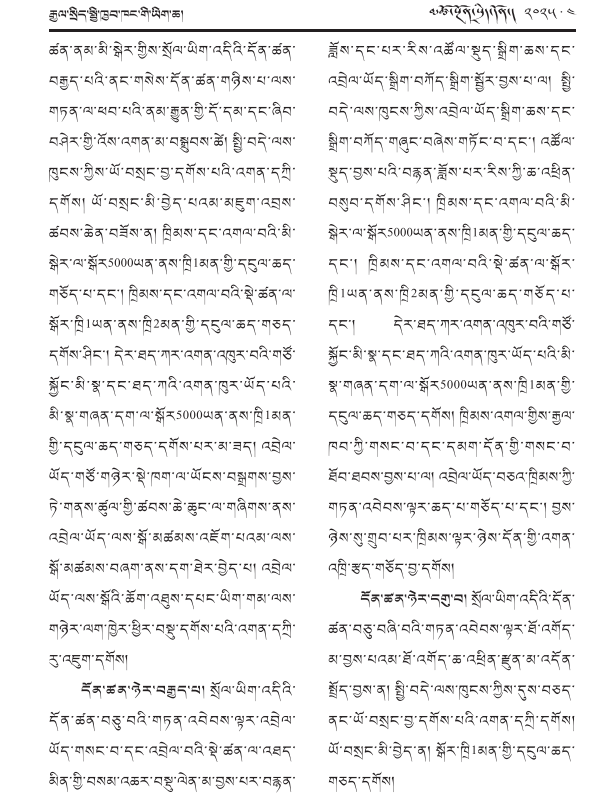 རྒྱལ་སྲིད་སྤྱི་ཁྱབ་ཁང་གི་ཡིག་ཆ།
༢༠༢༥ · ༤
ཚན་ནམ་མི་སྒེར་གྱིས་སྲོལ་ཡིག་འདིའི་དོན་ཚན་
བརྒྱད་པའི་ནང་གསེས་དོན་ཚན་གཉིས་པ་ལས་
གཏན་ལ་ཕབ་པའི་ནམ་རྒྱུན་གྱི་དོ་དམ་དང་ཞིབ་
བཤེར་གྱི་འོས་འགན་མ་བསྒྲུབས་ཚེ། སྤྱི་བདེ་ལས་
ཁུངས་ཀྱིས་ཡོ་བསྲང་བྱ་དགོས་པའི་འགན་དཀྲི་
དགོས། ཡོ་བསྲང་མི་བྱེད་པའམ་མཇུག་འབྲས་
ཚབས་ཆེན་བཟོས་ན། ཁྲིམས་དང་འགལ་བའི་མི་
སྒེར་ལ་སྒོར5000ཡན་ནས་ཁྲི1མན་གྱི་དངུལ་ཆད་
གཅོད་པ་དང་། ཁྲིམས་དང་འགལ་བའི་སྡེ་ཚན་ལ་
སྒོར་ཁྲི1ཡན་ནས་ཁྲི2མན་གྱི་དངུལ་ཆད་གཅད་
དགོས་ཤིང་། དེར་ཐད་ཀར་འགན་འཁུར་བའི་གཙོ་
སྐྱོང་མི་སྣ་དང་ཐད་ཀའི་འགན་ཁུར་ཡོད་པའི་
མི་སྣ་གཞན་དག་ལ་སྒོར5000ཡན་ནས་ཁྲི1མན་
གྱི་དངུལ་ཆད་གཅད་དགོས་པར་མ་ཟད། འབྲེལ་
ཡོད་གཙོ་གཉེར་སྡེ་ཁག་ལ་ཡོངས་བསྒྲགས་བྱས་
ཏེ་གནས་ཚུལ་གྱི་ཚབས་ཆེ་ཆུང་ལ་གཞིགས་ནས་
འབྲེལ་ཡོད་ལས་སྒོ་མཚམས་འཇོག་པའམ་ལས་
སྒོ་མཚམས་བཞག་ནས་དག་ཐེར་བྱེད་པ། འབྲེལ་
ཡོད་ལས་སྒོའི་ཆོག་འཐུས་དཔང་ཡིག་གམ་ལས་
གཉེར་ལག་ཁྱེར་ཕྱིར་བསྡུ་དགོས་པའི་འགན་དཀྲི་
རུ་འཇུག་དགོས།
དོན་ཚན་ཉེར་བརྒྱད་པ། སྲོལ་ཡིག་འདིའི་
དོན་ཚན་བཅུ་བའི་གཏན་འབེབས་ལྟར་འབྲེལ་
ཡོད་གསང་བ་དང་འབྲེལ་བའི་སྡེ་ཚན་ལ་འཐད་
མིན་གྱི་བསམ་འཆར་བསྡུ་ལེན་མ་བྱས་པར་བརྙན་
རློས་དང་པར་རིས་འཚོལ་སྡུད་སྒྲིག་ཆས་དང་
འབྲེལ་ཡོད་སྒྲིག་བཀོད་སྒྲིག་སྦྱོར་བྱས་པ་ལ། སྤྱི་
བདེ་ལས་ཁུངས་ཀྱིས་འབྲེལ་ཡོད་སྒྲིག་ཆས་དང་
སྒྲིག་བཀོད་གཞུང་བཞེས་གཏོང་བ་དང་། འཚོལ་
སྡུད་བྱས་པའི་བརྙན་རློས་པར་རིས་ཀྱི་ཆ་འཕྲིན་
བསུབ་དགོས་ཤིང་། ཁྲིམས་དང་འགལ་བའི་མི་
སྒེར་ལ་སྒོར5000ཡན་ནས་ཁྲི1མན་གྱི་དངུལ་ཆད་
དང་། ཁྲིམས་དང་འགལ་བའི་སྡེ་ཚན་ལ་སྒོར་
ཁྲི1ཡན་ནས་ཁྲི2མན་གྱི་དངུལ་ཆད་གཅོད་པ་
དང་། དེར་ཐད་ཀར་འགན་འཁུར་བའི་གཙོ་
སྐྱོང་མི་སྣ་དང་ཐད་ཀའི་འགན་ཁུར་ཡོད་པའི་མི་
སྣ་གཞན་དག་ལ་སྒོར5000ཡན་ནས་ཁྲི1མན་གྱི་
དངུལ་ཆད་གཅད་དགོས། ཁྲིམས་འགལ་གྱིས་རྒྱལ་
ཁབ་ཀྱི་གསང་བ་དང་དམག་དོན་གྱི་གསང་བ་
ཐོབ་ཐབས་བྱས་པ་ལ། འབྲེལ་ཡོད་བཅའ་ཁྲིམས་ཀྱི་
གཏན་འབེབས་ལྟར་ཆད་པ་གཅོད་པ་དང་། བྱས་
ཉེས་སུ་གྲུབ་པར་ཁྲིམས་ལྟར་ཉེས་དོན་གྱི་འགན་
འཁྲི་རྩད་གཅོད་བྱ་དགོས།
དོན་ཚན་ཉེར་དགུ་བ། སྲོལ་ཡིག་འདིའི་དོན་
ཚན་བཅུ་བཞི་བའི་གཏན་འབེབས་ལྟར་ཐོ་འགོད་
མ་བྱས་པའམ་ཐོ་འགོད་ཆ་འཕྲིན་རྫུན་མ་འདོན་
སྤྲོད་བྱས་ན། སྤྱི་བདེ་ལས་ཁུངས་ཀྱིས་དུས་བཅད་
ནང་ཡོ་བསྲང་བྱ་དགོས་པའི་འགན་དཀྲི་དགོས།
ཡོ་བསྲང་མི་བྱེད་ན། སྒོར་ཁྲི1མན་གྱི་དངུལ་ཆད་
གཅད་དགོས།